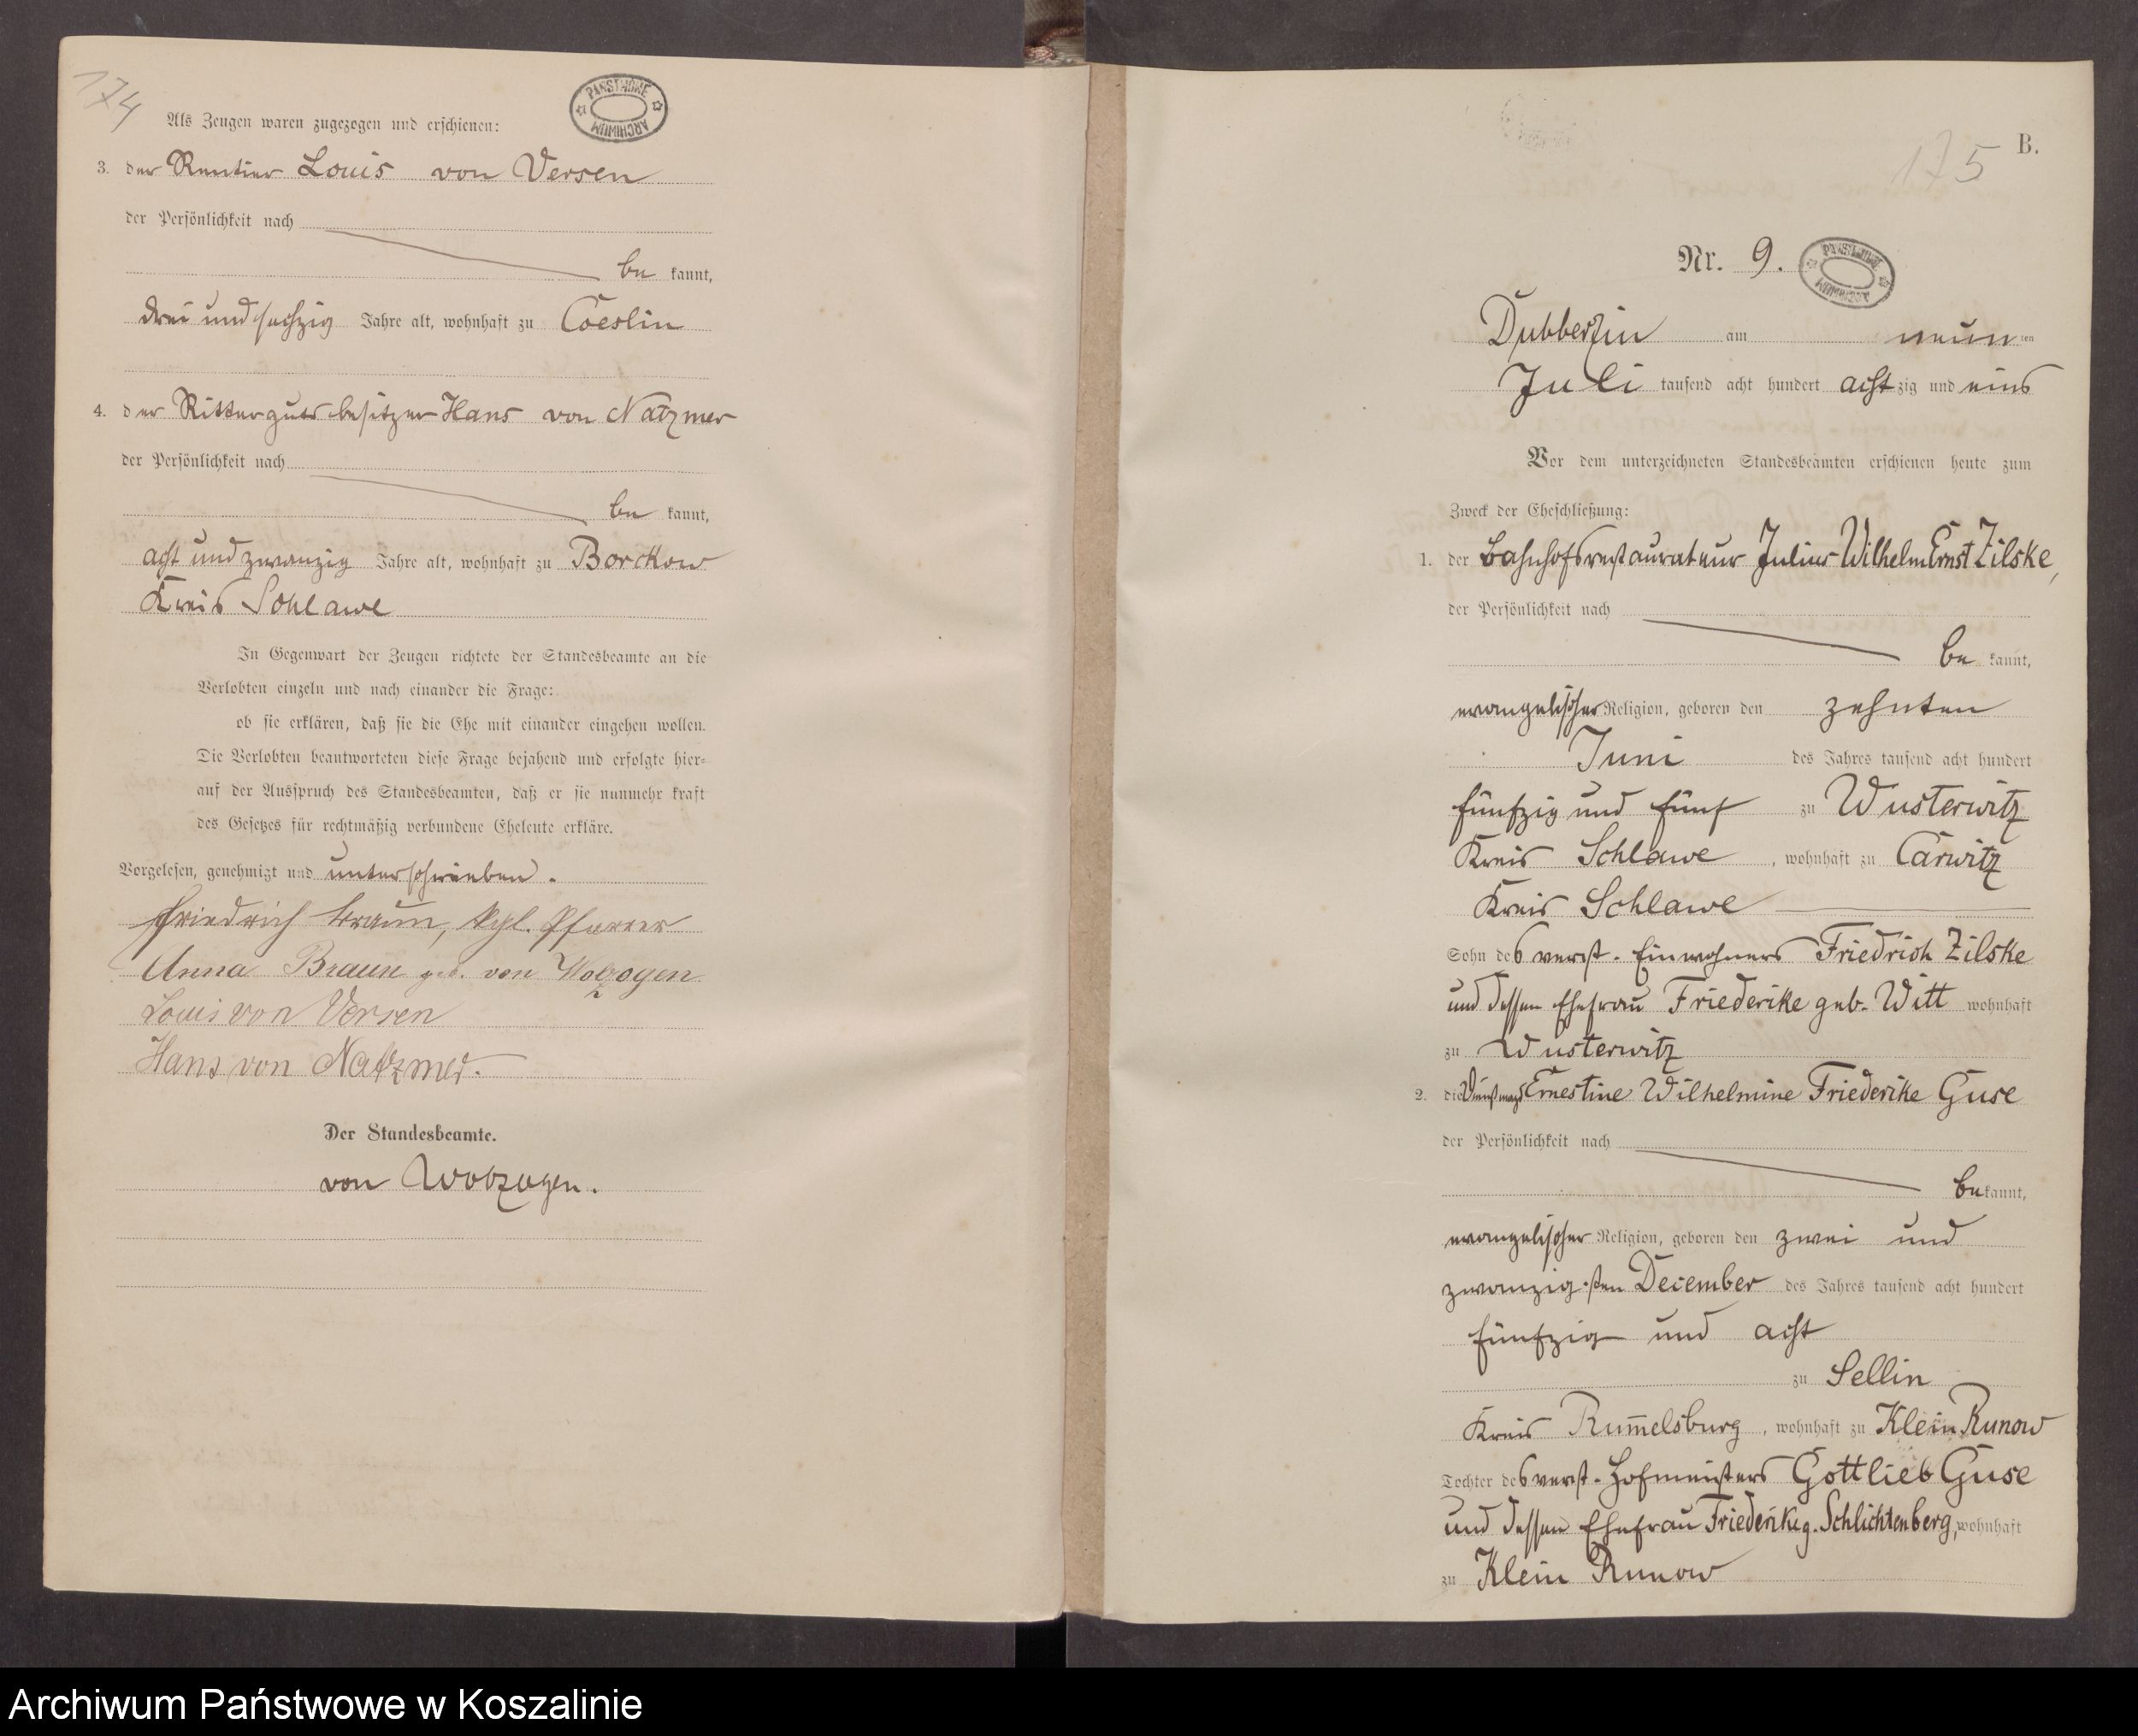 174
PAŃSTWOWE ARCHIWUM
Als Zeugen waren zugezogen und erschienen:
3. der Rentier Louis von Versen
der Persönlichkeit nach
be kannt,
drei und sechzig Jahre alt, wohnhaft zu Coeslin
4. der Rittergutsbesitzer Hans von Natzmer
der Persönlichkeit nach
be kannt,
acht und zwanzig Jahre alt, wohnhaft zu Borckow
Kreis Schlawe
In Gegenwart der Zeugen richtete der Standesbeamte an die
Verlobten einzeln und nach einander die Frage:
ob sie erklären, daß sie die Ehe mit einander eingehen wollen.
Die Verlobten beantworteten diese Frage bejahend und erfolgte hier-
auf der Ausspruch des Standesbeamten, daß er sie nunmehr kraft
des Gesetzes für rechtmäßig verbundene Eheleute erkläre.
Vorgelesen, genehmigt und unterschrieben.
Friedrich Braun, kgl. Pfarrer
Anna Braun geb. von Wolzogen
Louis von Versen
Hans von Natzmer.
Der Standesbeamte.
von Wolzogen.
175
B.
Nr. 9.
PAŃSTWOWE ARCHIWUM
Dubberzin am neun ten
Juli tausend acht hundert acht zig und eins
Vor dem unterzeichneten Standesbeamten erschienen heute zum
Zweck der Eheschließung:
1. der Bahnhofsrestaurateur Julius Wilhelm Ernst Zilske,
der Persönlichkeit nach
be kannt,
evangelischer Religion, geboren den zehnten
Juni des Jahres tausend acht hundert
fünfzig und fünf zu Wusterwitz
Kreis Schlawe, wohnhaft zu Carwitz
Kreis Schlawe
Sohn des verst. Einwohners Friedrich Zilske
und dessen Ehefrau Friederike geb. Witt wohnhaft
zu Wusterwitz
2. die Dienstmagd Ernestine Wilhelmine Friederike Guse
der Persönlichkeit nach
be kannt,
evangelischer Religion, geboren den zwei und
zwanzigsten December des Jahres tausend acht hundert
fünfzig und acht
zu Sellin
Kreis Rum̄elsburg, wohnhaft zu Klein Runow
Tochter des verst. Hofmeisters Gottlieb Guse
und dessen Ehefrau Friederike g. Schlichtenberg, wohnhaft
zu Klein Runow
Archiwum Państwowe w Koszalinie